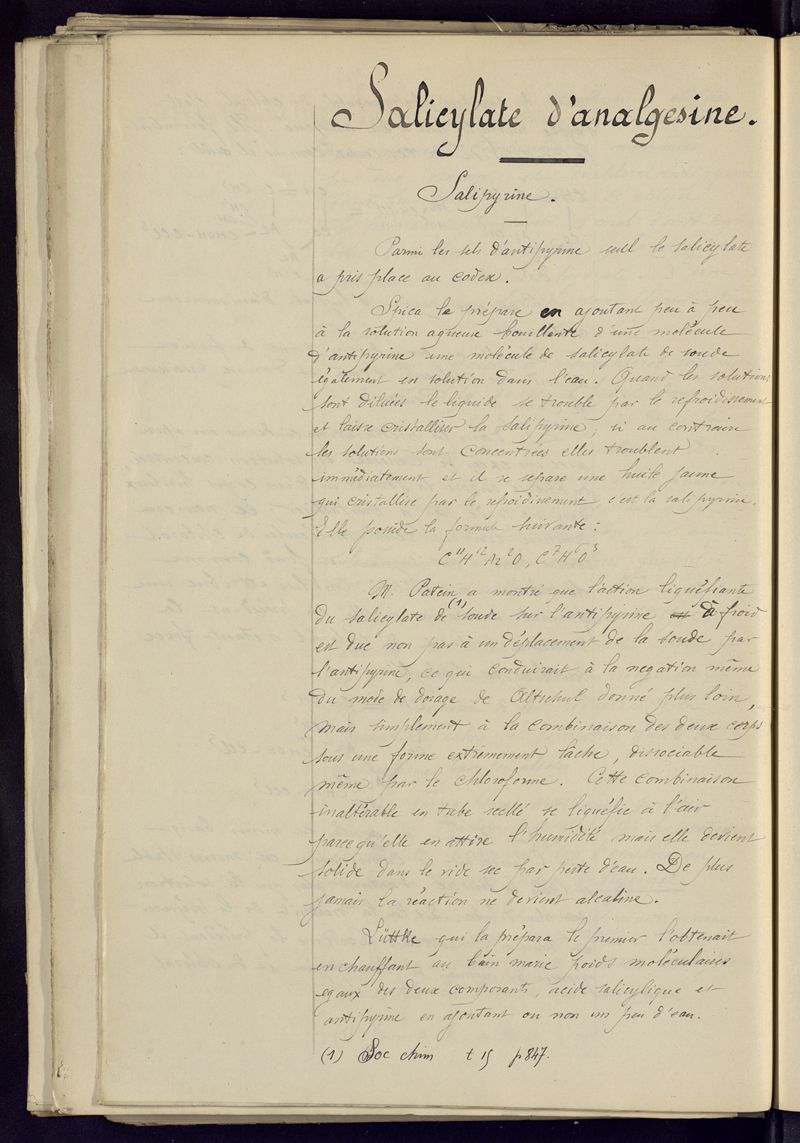 Salicylate d'analgesine.
Salipyrine.
Parmi les sels d'antipyrine seul le salicylate
a pris place au codex.
Spica le prépare en ajoutant peu à peu
à la solution aqueuse bouillante d'une molécule
d'antipyrine une molécule de salicylate de soude
également en solution dans l'eau. Quand les solutions
sont diluées le liquide se trouble par le refroidissement
et laisse cristalliser la salipyrine, si au contraire
les solutions sont concentrées elles troublent
immédiatement et il se separe une huile jaune
qui cristallise par le refroidissement c'est la salipyrine.
Elle possède la formule suivante :
C¹¹H¹²Az²O, C⁷H⁶O³
M. Patein a montré que l'action liquéfiante
du salicylate de (1) soude sur l'antipyrine à froid
est due non pas à un déplacement de la soude par
l'antipyrine, ce qui conduirait à la negation même
du mode de dosage de Altschul donné plus loin,
mais simplement à la combinaison des deux corps
sous une forme extrêmement lâche, dissociable
même par le chloroforme. Cette combinaison
inaltérable en tube scellé se liquéfie à l'air
parce qu'elle en attire l'humidité mais elle devient
solide dans le vide sec par perte d'eau. De plus
jamais la réaction ne devient alcaline.
Lüttke qui la prépara le premier l'obtenait
en chauffant au bain marie poids moléculaires
egaux des deux composants, acide salicylique et
antipyrine en ajoutant ou non un peu d'eau.
(1) Soc chim t 15 p 847.